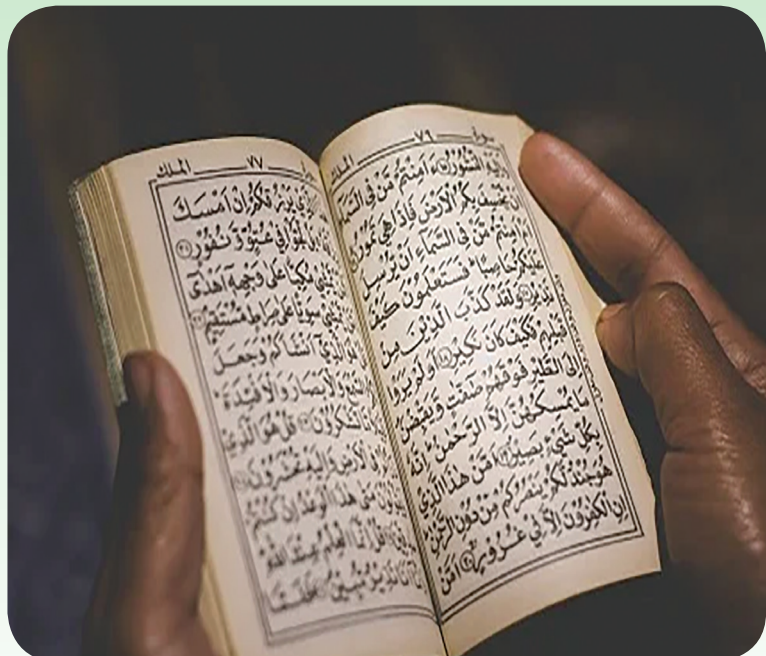 سورة ٧٦ الملك
النُّشُوْرُ ءَاَمِنْتُمْ مَّنْ فِی السَّمَآءِ
اَنْ يَّخْسِفَ بِكُمُ الْاَرْضَ فَاِذَا هِیَ تَمُوْرُ
اَمْ اَمِنْتُمْ مَّنْ فِی السَّمَآءِ اَنْ يُّرْسِلَ
عَلَيْكُمْ حَاصِبًا فَسَتَعْلَمُوْنَ كَيْفَ
نَذِيْرِ وَلَقَدْ كَذَّبَ الَّذِيْنَ مِنْ
قَبْلِهِمْ فَكَيْفَ كَانَ نَكِيْرِ اَوَلَمْ يَرَوْا
اِلَی الطَّيْرِ فَوْقَهُمْ صٰٓفّٰتٍ وَّيَقْبِضْنَ
مَا يُمْسِكُهُنَّ اِلَّا الرَّحْمٰنُ اِنَّهٗ
بِكُلِّ شَیْءٍ بَصِيْرٌ اَمَّنْ هٰذَا الَّذِیْ
هُوَ جُنْدٌ لَّكُمْ يَنْصُرُكُمْ مِّنْ دُوْنِ الرَّحْمٰنِ
اِنِ الْكٰفِرُوْنَ اِلَّا فِیْ غُرُوْرٍ اَمَّنْ
٧٧ الملك
يَرْزُقُكُمْ اِنْ اَمْسَكَ
لَّجُّوْا فِیْ عُتُوٍّ وَّ نُفُوْرٍ ٢١
يَّمْشِیْ مُكِبًّا عَلٰی وَجْهِهٖٓ اَهْدٰٓی
يَّمْشِیْ سَوِيًّا عَلٰی صِرَاطٍ مُّسْتَقِيْمٍ
هُوَ الَّذِیْٓ اَنْشَاَكُمْ وَجَعَلَ
السَّمْعَ وَالْاَبْصَارَ وَالْاَفْـِٕدَةَ
مَّا تَشْكُرُوْنَ قُلْ هُوَ الَّذِیْ
فِی الْاَرْضِ وَاِلَيْهِ تُحْشَرُوْنَ
مَتٰی هٰذَا الْوَعْدُ اِنْ كُنْتُمْ
قُلْ اِنَّمَا الْعِلْمُ عِنْدَ اللّٰهِ
اَنَا نَذِيْرٌ مُّبِيْنٌ فَلَمَّا